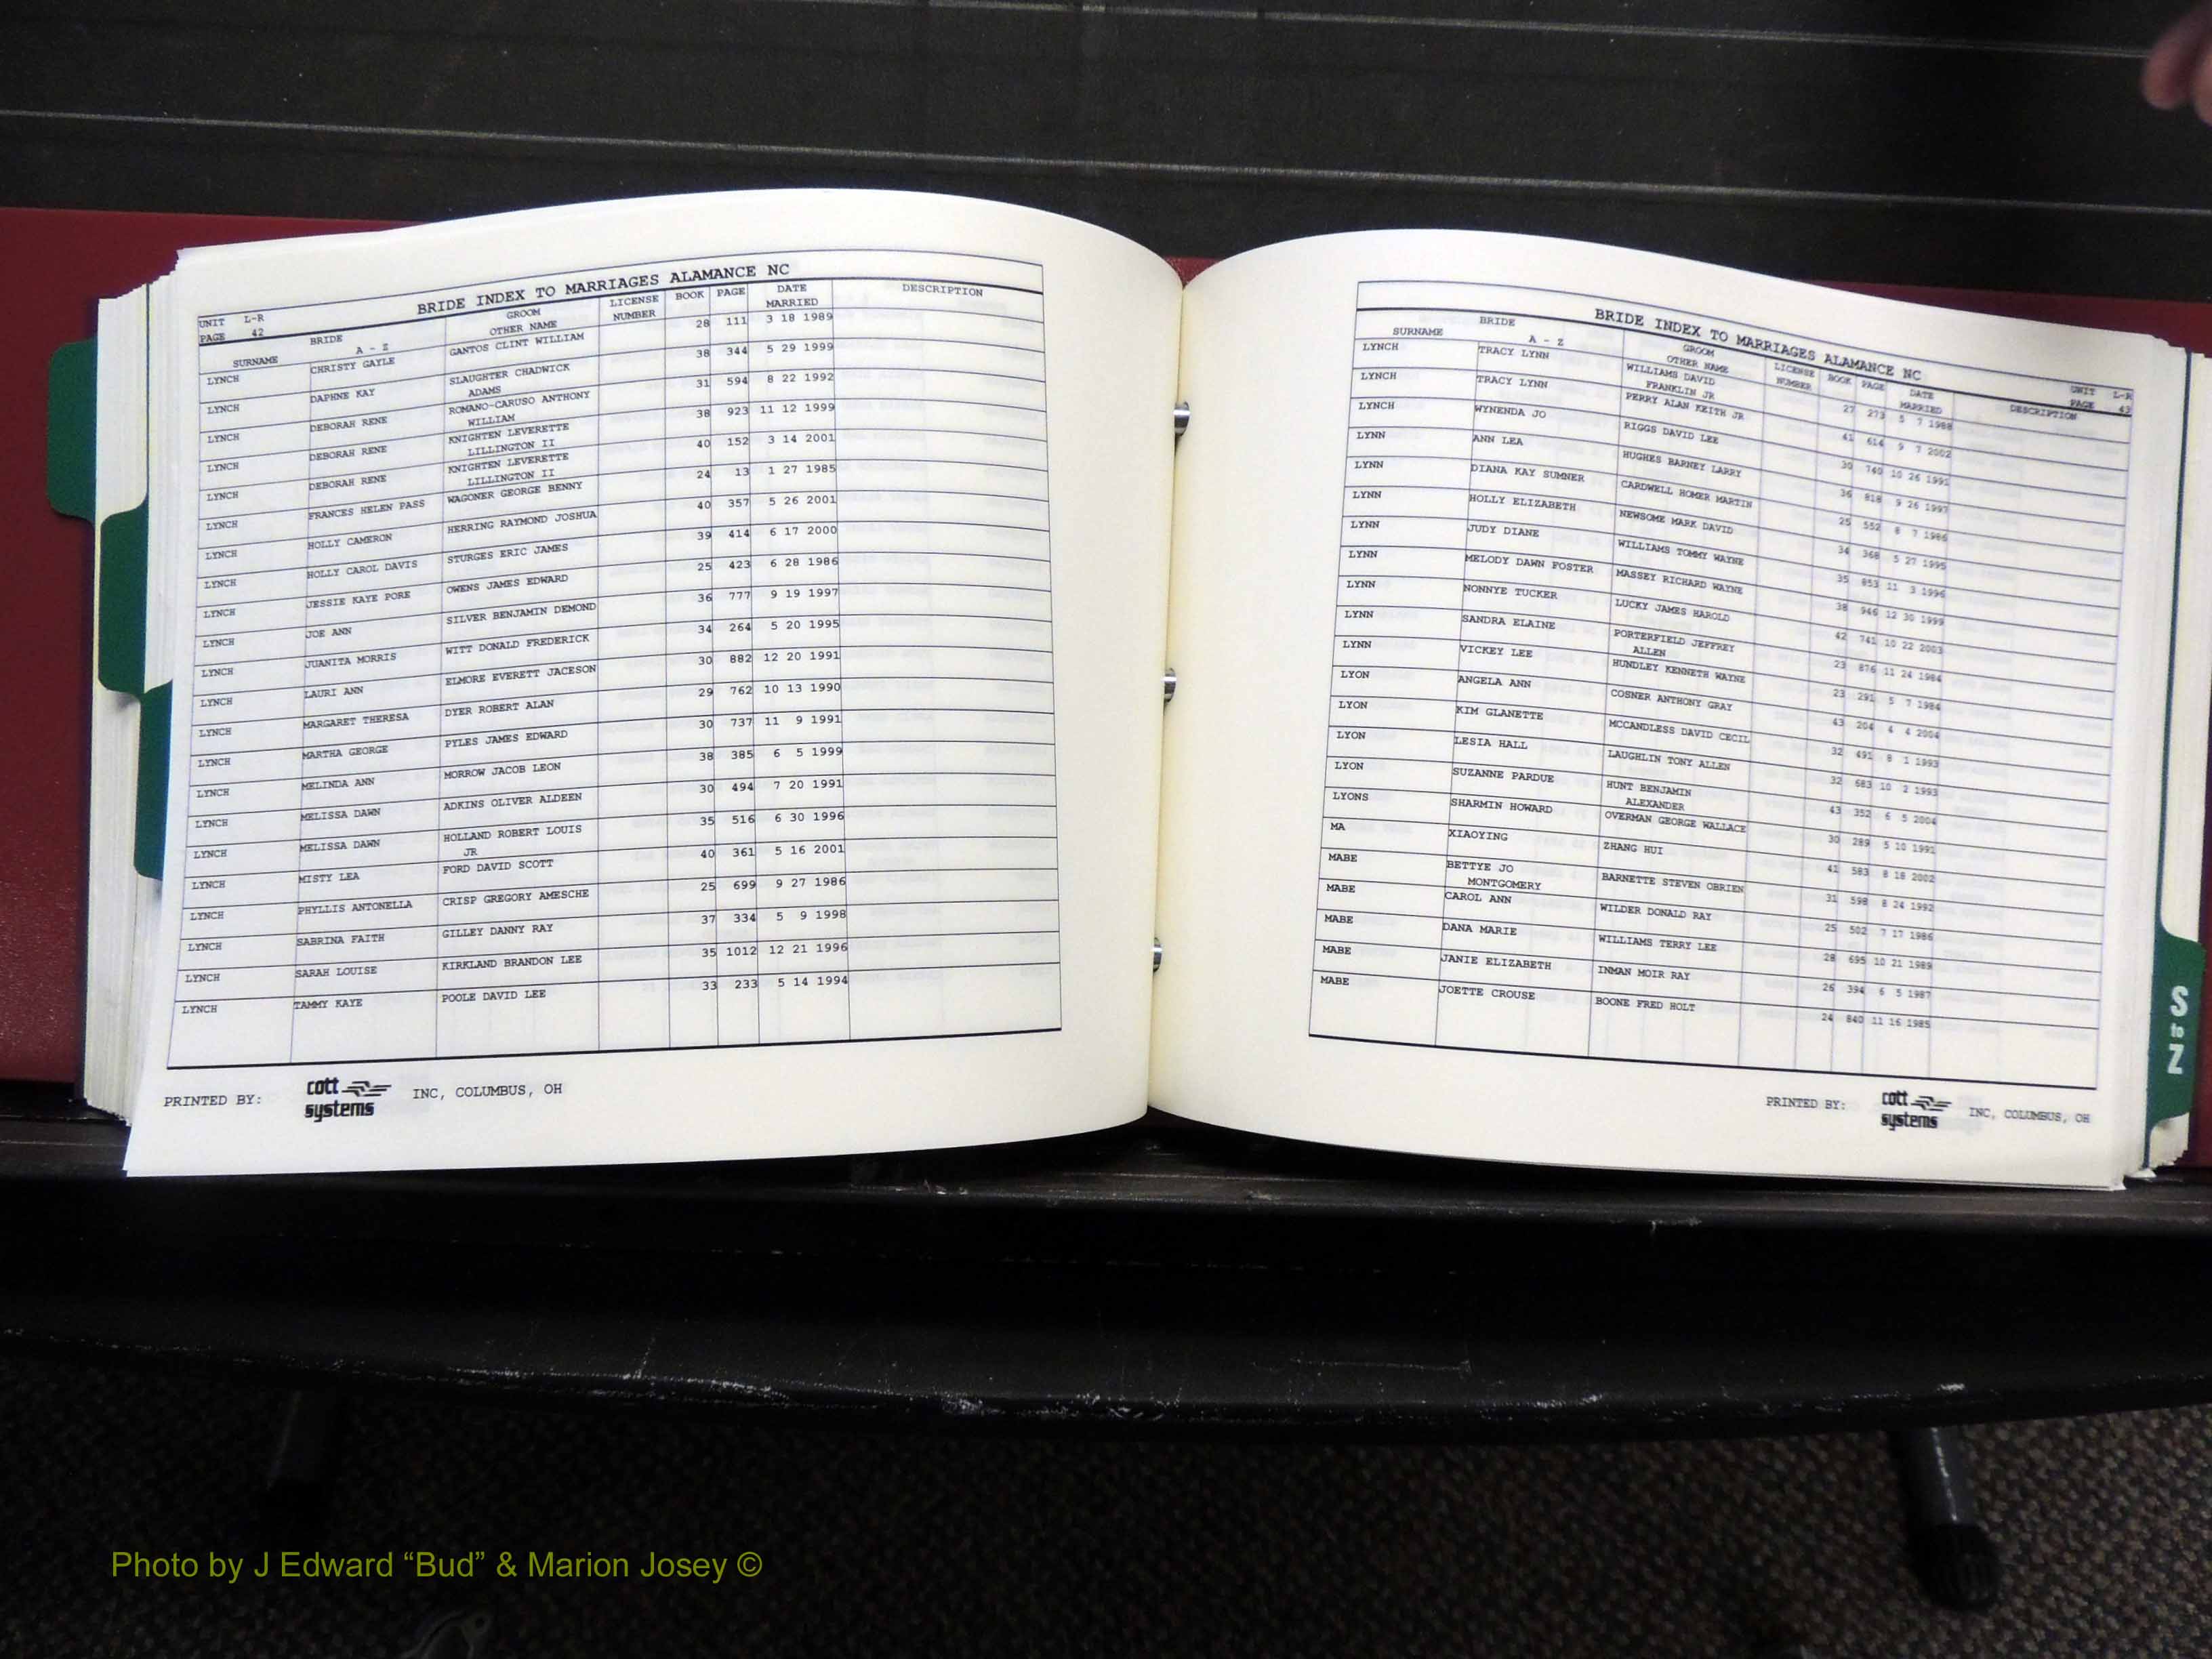 BRIDE INDEX TO MARRIAGES ALAMANCE NC
UNIT L-R
PAGE 42
SURNAME BRIDE A - Z GROOM OTHER NAME LICENSE NUMBER BOOK PAGE DATE MARRIED DESCRIPTION
LYNCH CHRISTY GAYLE GANTOS CLINT WILLIAM 28 111 3 18 1989
LYNCH DAPHNE KAY SLAUGHTER CHADWICK ADAMS 38 344 5 29 1999
LYNCH DEBORAH RENE ROMANO-CARUSO ANTHONY WILLIAM 31 594 8 22 1992
LYNCH DEBORAH RENE KNIGHTEN LEVERETTE LILLINGTON II 38 923 11 12 1999
LYNCH DEBORAH RENE KNIGHTEN LEVERETTE LILLINGTON II 40 152 3 14 2001
LYNCH FRANCES HELEN PASS WAGONER GEORGE BENNY 24 13 1 27 1985
LYNCH HOLLY CAMERON HERRING RAYMOND JOSHUA 40 357 5 26 2001
LYNCH HOLLY CAROL DAVIS STURGES ERIC JAMES 39 414 6 17 2000
LYNCH JESSIE KAYE PORE OWENS JAMES EDWARD 25 423 6 28 1986
LYNCH JOE ANN SILVER BENJAMIN DEMOND 36 777 9 19 1997
LYNCH JUANITA MORRIS WITT DONALD FREDERICK 34 264 5 20 1995
LYNCH LAURI ANN ELMORE EVERETT JACESON 30 882 12 20 1991
LYNCH MARGARET THERESA DYER ROBERT ALAN 29 762 10 13 1990
LYNCH MARTHA GEORGE PYLES JAMES EDWARD 30 737 11 9 1991
LYNCH MELINDA ANN MORROW JACOB LEON 38 385 6 5 1999
LYNCH MELISSA DAWN ADKINS OLIVER ALDEEN 30 494 7 20 1991
LYNCH MELISSA DAWN HOLLAND ROBERT LOUIS JR 35 516 6 30 1996
LYNCH MISTY LEA FORD DAVID SCOTT 40 361 5 16 2001
LYNCH PHYLLIS ANTONELLA CRISP GREGORY AMESCHE 25 699 9 27 1986
LYNCH SABRINA FAITH GILLEY DANNY RAY 37 334 5 9 1998
LYNCH SARAH LOUISE KIRKLAND BRANDON LEE 35 1012 12 21 1996
LYNCH TAMMY KAYE POOLE DAVID LEE 33 233 5 14 1994
PRINTED BY: cott systems INC, COLUMBUS, OH
BRIDE INDEX TO MARRIAGES ALAMANCE NC
UNIT L-R
PAGE 43
SURNAME BRIDE A - Z GROOM OTHER NAME LICENSE NUMBER BOOK PAGE DATE MARRIED DESCRIPTION
LYNCH TRACY LYNN WILLIAMS DAVID FRANKLIN JR 27 273 5 7 1988
LYNCH TRACY LYNN PERRY ALAN KEITH JR 41 614 9 7 2002
LYNCH WYNENDA JO RIGGS DAVID LEE 30 740 10 26 1991
LYNN ANN LEA HUGHES BARNEY LARRY 36 818 9 26 1997
LYNN DIANA KAY SUMNER CARDWELL HOMER MARTIN 25 552 8 7 1986
LYNN HOLLY ELIZABETH NEWSOME MARK DAVID 34 368 5 27 1995
LYNN JUDY DIANE WILLIAMS TOMMY WAYNE 35 853 11 3 1996
LYNN MELODY DAWN FOSTER MASSEY RICHARD WAYNE 38 946 12 30 1999
LYNN NONNYE TUCKER LUCKY JAMES HAROLD 42 741 10 22 2003
LYNN SANDRA ELAINE PORTERFIELD JEFFREY ALLEN 23 876 11 24 1984
LYNN VICKEY LEE HUNDLEY KENNETH WAYNE 23 291 5 7 1984
LYON ANGELA ANN COSNER ANTHONY GRAY 43 204 4 4 2004
LYON KIM GLANETTE MCCANDLESS DAVID CECIL 32 491 8 1 1993
LYON LESIA HALL LAUGHLIN TONY ALLEN 32 683 10 2 1993
LYON SUZANNE PARDUE HUNT BENJAMIN ALEXANDER 43 352 6 5 2004
LYONS SHARMIN HOWARD OVERMAN GEORGE WALLACE 30 289 5 10 1991
MA XIAOYING ZHANG HUI 41 583 8 18 2002
MABE BETTYE JO MONTGOMERY BARNETTE STEVEN OBRIEN 31 598 8 24 1992
MABE CAROL ANN WILDER DONALD RAY 25 502 7 17 1986
MABE DANA MARIE WILLIAMS TERRY LEE 28 695 10 21 1989
MABE JANIE ELIZABETH INMAN MOIR RAY 26 394 6 5 1987
MABE JOETTE CROUSE BOONE FRED HOLT 24 840 11 16 1985
PRINTED BY: cott systems INC, COLUMBUS, OH
S to Z
Photo by J Edward “Bud” & Marion Josey ©